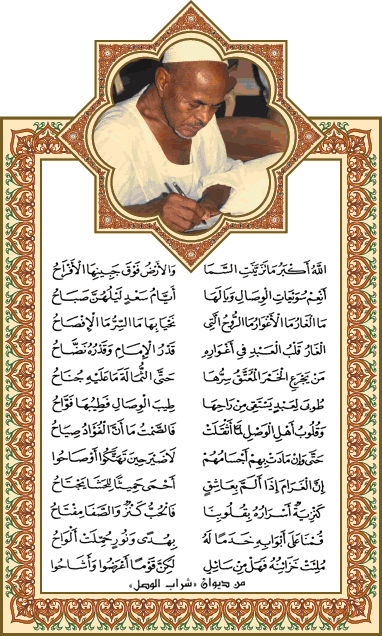 اللَّهُ أَكْبَرُ مَا تَزَيَّنَتِ السَّمَا وَالأَرْضُ فَوْقَ جَبِينِهَا الأَفْرَاحُ
أَنْعِمْ سُوَيْعَاتِ الْوِصَالِ وَيَالَهَا أَيَّامُ سَعْدٍ لَيْلُهُنَّ صَبَاحُ
مَا الْغَارُ مَا الأَغْوَارُ مَا الرُّوحُ الَّتِي نَحْيَا بِهَا مَا السِّرُّ مَا الإِفْصَاحُ
الْغَارُ قَلْبُ الْعَبْدِ فِي أَغْوَارِهِ قَدْرُ الإِمَامِ وَقَدْرُهُ نَضَّاحُ
مَنْ يَجْرَعِ الْخَمْرَ الْمُعَتَّقَ سِرُّهَا حَتَّى الثُّمَالَةَ مَا عَلَيْهِ جُنَاحُ
طُوبَى لِعَبْدٍ يَسْتَقِي مِنْ رَاحِهَا طِيبَ الْوِصَالِ فَطِيبُهَا فَوَّاحُ
وَقُلُوبُ أَهْلِ الْوَصْلِ لَمَّا أُثْقِلَتْ فَالصَّمْتُ مَا أَنَّ الْفُؤَادُ صِيَاحُ
حَتَّى وَإِنْ مَادَتْ بِهِمْ أَجْسَامُهُمْ لَا ضَيْرَ حِينَ تَهَتَّكُوا أَوْ صَاحُوا
إِنَّ الْغَرَامَ إِذَا أَلَمَّ بِعَاشِقٍ أَضْحَى حَمِيمًا لِلْحَشَا يَجْتَاحُ
كَنْزِيَّةٌ أَسْرَارُهُ بِقُلُوبِنَا فَالْحُبُّ كَنْزٌ وَالصَّفَا مِفْتَاحُ
قُمْنَا عَلَى أَبْوَابِهِ خَدَمًا لَهُ بِهُدًى وَنُورٍ حُمِّلَتْ أَلْوَاحُ
مُلِئَتْ خَزَائِنُهُ فَهَلْ مِنْ سَائِلٍ لَكِنَّ قَوْمًا أَعْرَضُوا وَأَشَاحُوا
من ديوان «شراب الوصل»